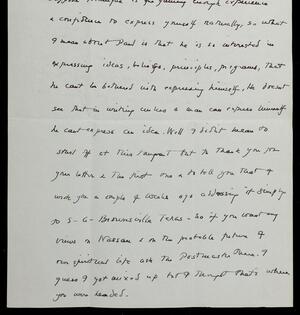 support technique is the gaining enough experience
& confidence to express yourself naturally, so what
I mean about Paul is that he is so interested in
expressing ideas, beliefs, principles, programs, that
he can't be bothered with expressing himself, he doesnt
see that in writing unless a man can express himself
he cant express an idea. Well I didnt mean to
start off at this tangent but to thank you for
your letter & the first one & to tell you that I
wrote you a couple of weeks ago addressing it simply
to S- G- Brownsville Texas - So if you want my
views on Nassau & on the probable future of
our spiritual life ask the Postmaster there. I
guess I got mixed up but I thought that's where
you were headed.